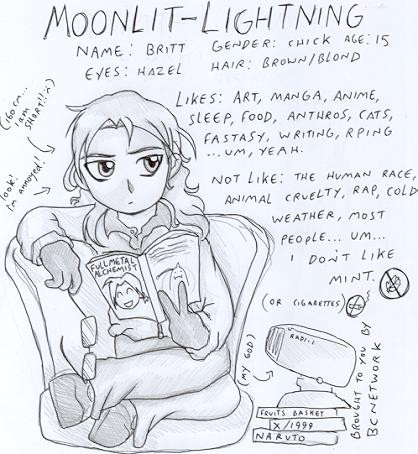 MOONLIT-LIGHTNING
NAME: BRITT GENDER: CHICK AGE: 15
EYES: HAZEL HAIR: BROWN/BLOND
(160CM... I am SHORT!! :X)
look! I'm annoyed!
LIKES: ART, MANGA, ANIME,
SLEEP, FOOD, ANTHROS, CATS,
FASTASY, WRITING, RPING
...UM, YEAH.
NOT LIKE: THE HUMAN RACE,
ANIMAL CRUELTY, RAP, COLD
WEATHER, MOST
PEOPLE... UM...
I DON'T LIKE
MINT.
(OR CIGARETTES)
FULLMETAL
ALCHEMIST
(MY GOD)
RADI..
FRUITS BASKET
X/1999
NARUTO
BROUGHT TO YOU BY
BCNETWORK